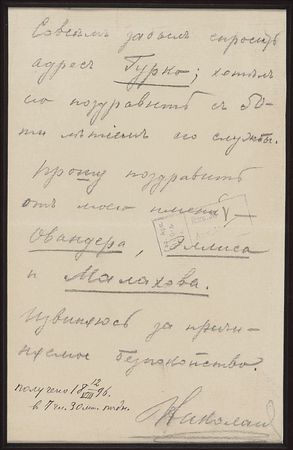 Совсѣмъ забылъ спросить
адресъ Гурко; хотѣлъ
его поздравить съ 50-
ти лѣтіемъ его службы.
Прошу поздравить
отъ моего имени
Овандера, Эллиса
и Малахова.
Извиняюсь за причи-
няемое безпокойство.
получено 18 12/VIII 96.
в 7 ч. 30 мин.
Николай